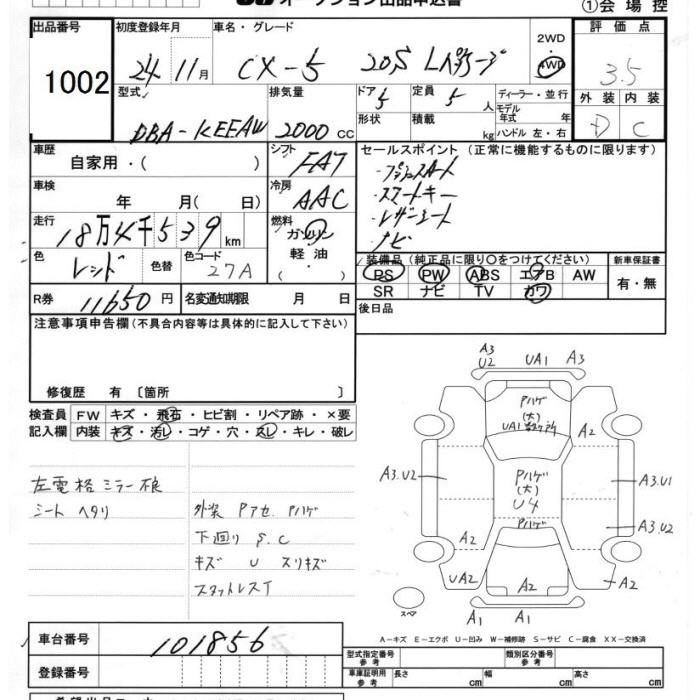 オークション出品申込書
①会場控
出品番号 1002
初度登録年月 24年 11月
車名・グレード CX-5 20S Lパッケージ
2WD
4WD
評価点 3.5
外装 内装
D C
型式 DBA-KEEAW
排気量 2000 cc
ドア 5
定員 5 人
ディーラー・並行
形状
積載 kg
モデル年式 年
ハンドル 左・右
車歴 自家用・( )
シフト FAT
車検 年 月( 日)
冷房 AAC
走行 18万4千539 km
燃料 ガソリン
軽油・( )
色 レッド
色替
色コード 27A
R券 11650 円
名変通知期限 月 日
セールスポイント(正常に機能するものに限ります)
・プッシュスタート
・スマートキー
・レザーシート
・ナビ
装備品(純正品に限り〇をつけてください)
PS PW ABS エアB AW
SR ナビ TV カワ
新車保証書
有・無
後日品
注意事項申告欄(不具合内容等は具体的に記入して下さい)
修復歴 有 〔箇所 〕
検査員 FW キズ・飛石・ヒビ割・リペア跡・×要
記入欄 内装 キズ・汚レ・コゲ・穴・スレ・キレ・破レ
左電格ミラー不良
シート ヘタリ
外装 Pアセ Pハゲ
下廻り S.C
キズ U スリキズ
スタットレスT
A3 U2 UA1 A3
Pハゲ
(大)
A2
A3.U2
Pハゲ
(大)
U4
A3.U1
Pハゲ
A3.U2
A2
UA2 A2 A2
A1 A1
スペア
A-キズ E-エクボ U-凹み W-補修跡 S-サビ C-腐食 XX-交換済
車台番号 101856
登録番号
型式指定番号 参考
類別区分番号 参考
車庫証明用 参考
長さ cm
幅 cm
高さ cm